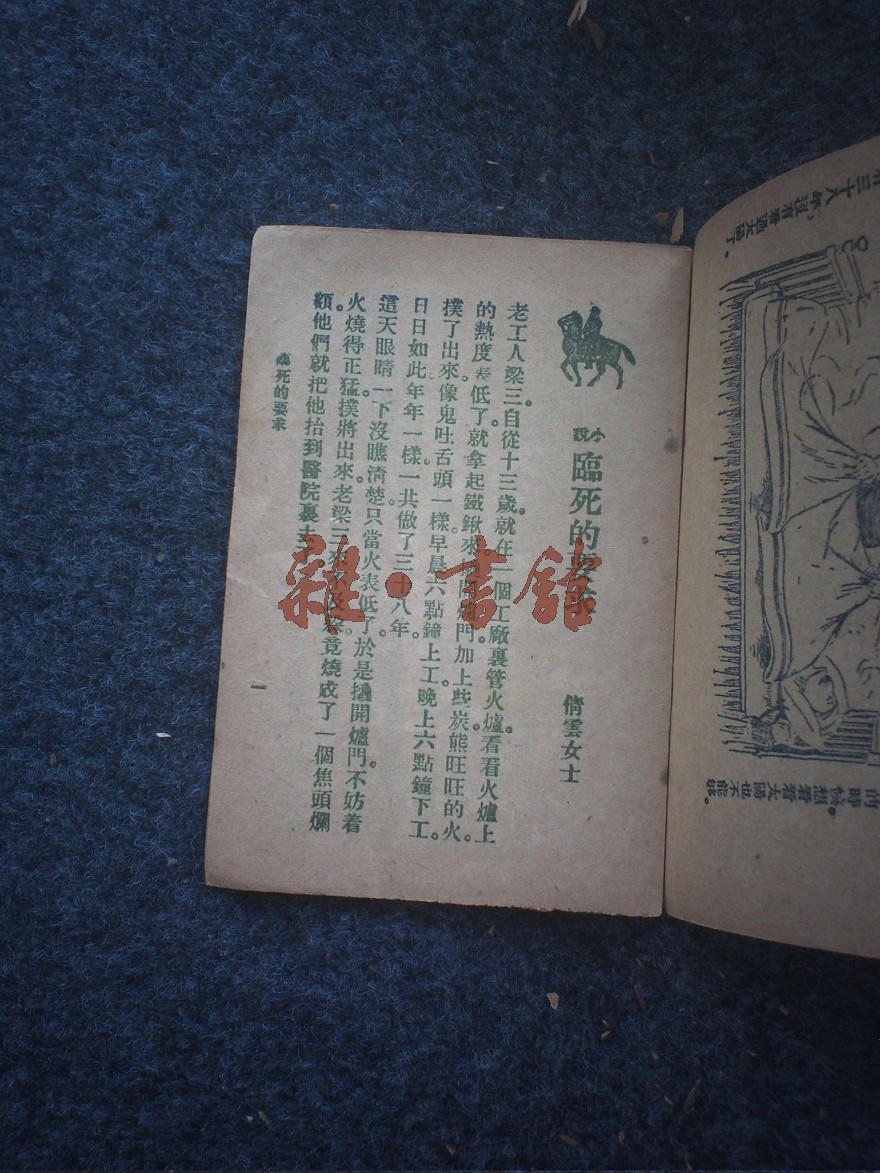 小說 臨死的要求
倩雲女士
老工人梁三。自從十三歲。就在一個工廠裏管火爐。看看火爐上
的熱度表。低了。就拿起鐵鍬來。開爐門。加上些炭。熊旺旺的火。
撲了出來。像鬼吐舌頭一樣。早晨六點鐘上工。晚上六點鐘下工。
日日如此。年年一樣。一共做了三十八年。
這天眼睛一下沒瞧清楚。只當火表低了。於是開爐門。不妨着
火燒得正猛。撲將出來。老梁三竟燒成了一個焦頭爛
額。他們就把他抬到醫院裏去
臨死的要求
一
三十八年。沒有看過太陽了。
時候。想看看太陽也不能夠。
雜·書館